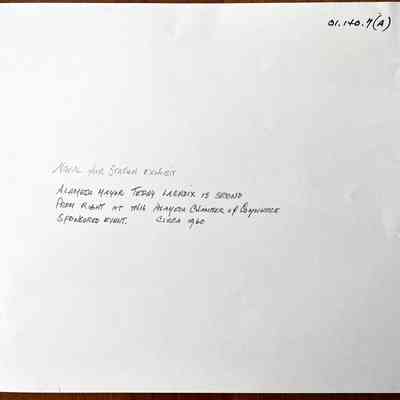 01.140.7(A)
Naval Air Station Exhibit
Alameda Mayor Terry LaCroix is second
from right at this Alameda Chamber of Commerce
sponsored event. Circa 1960